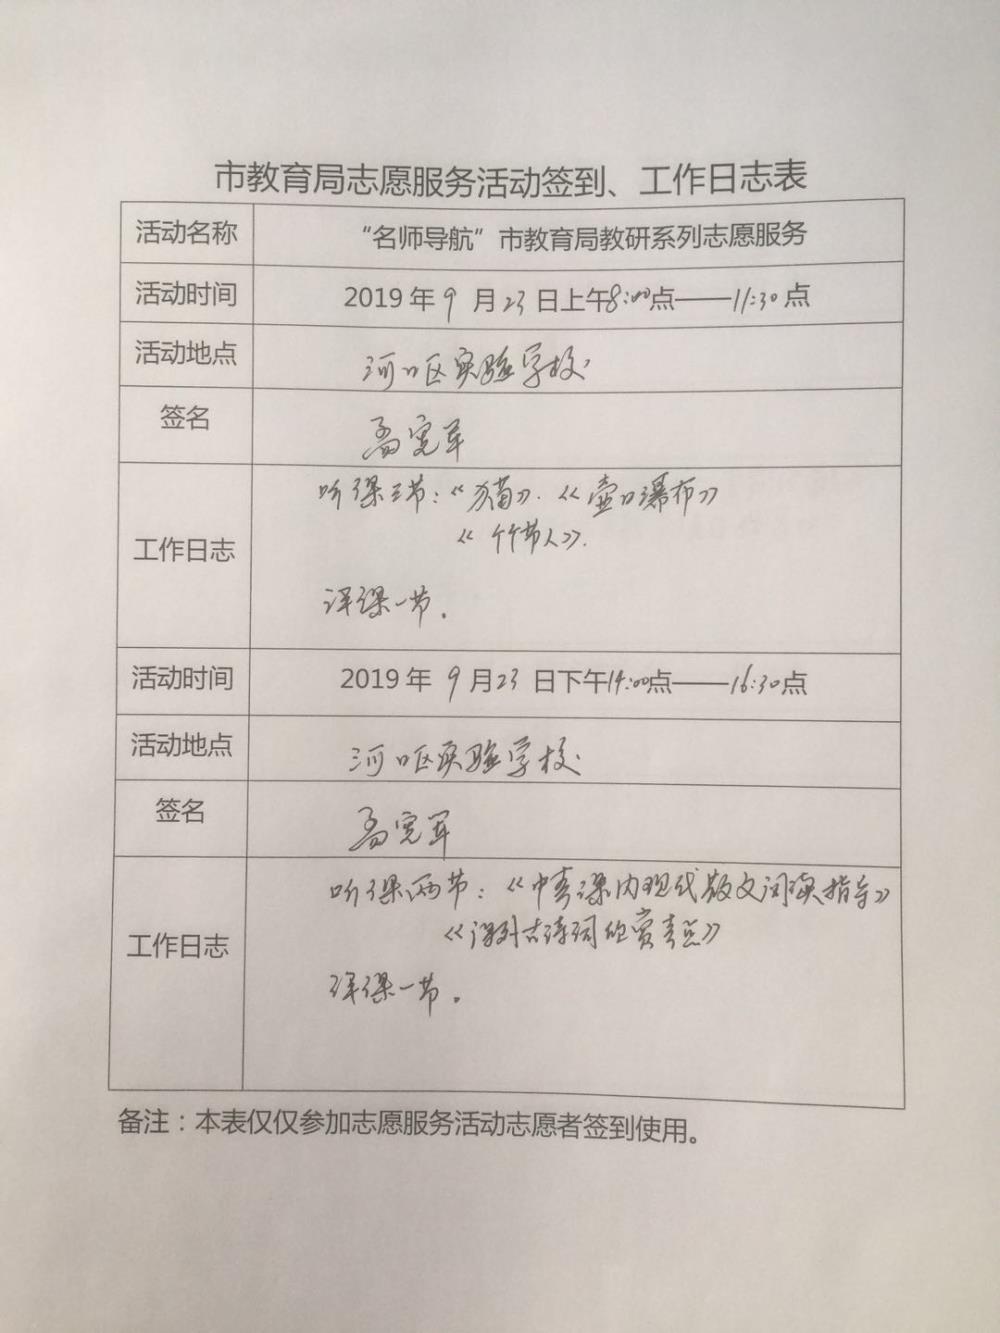 市教育局志愿服务活动签到、工作日志表
活动名称 “名师导航”市教育局教研系列志愿服务
活动时间 2019年9月23日上午8:00点——11:30点
活动地点 河口区实验学校
签名 孟宪军
工作日志 听课三节：《猫》.《壶口瀑布》
《竹节人》.
评课一节.
活动时间 2019年9月23日下午14:00点——16:30点
活动地点 河口区实验学校
签名 孟宪军
工作日志 听课两节：《中考课内现代散文阅读指导》
《课外古诗词的赏析》
评课一节.
备注：本表仅仅参加志愿服务活动志愿者签到使用。